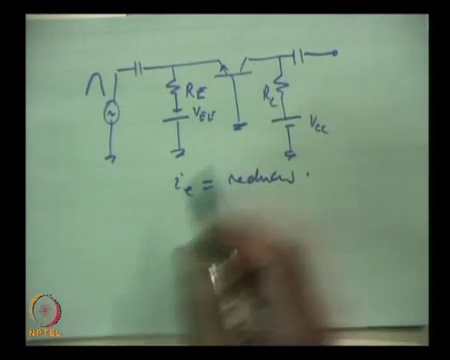 RE
VEE
RL
VCC
ie = reduces.
NPTEL